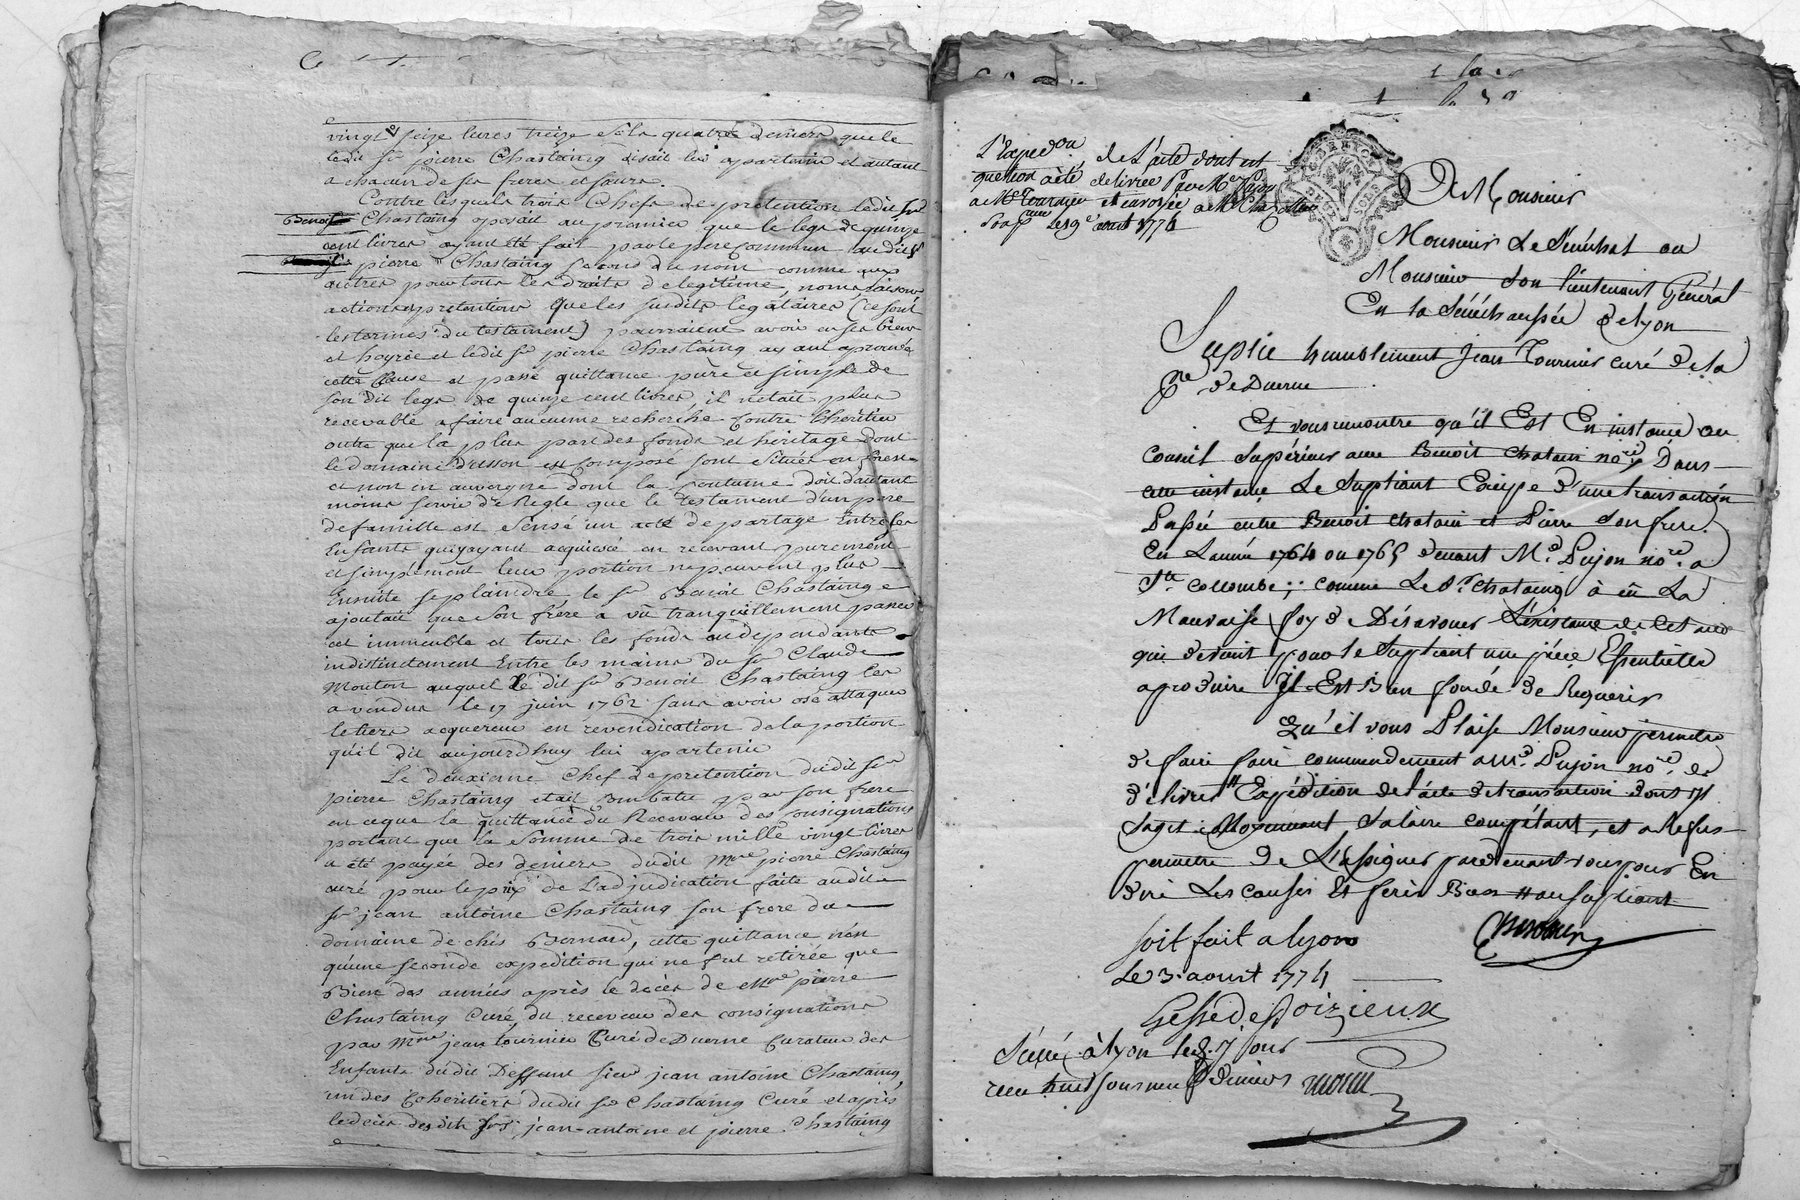 vingt seize livres treize sols quatre deniers que le
ledit Sr pierre Chastaing disait lui apartenir et autant
a chacun de ses freres et sœurs.
Contre lesquels trois chefs de pretention ledit Sr
Benoit Chastaing oposait au premier que le legs de quinze
cent livres ayant été fait par le pere commun audit Sr
pierre Chastaing second du nom comme aux
autres pour tous les droits de legitime, noms, raisons
actions et pretentions que les susdits legataires (ce sont
les termes du testament) pourraient avoir en ses biens
et hoyrie et ledit Sr pierre Chastaing ayant aprouvé
cette clause et passé quittance pure et simple de
son dit legs de quinze cent livres, il n'etait plus
recevable a faire aucune recherche contre l'heritier
outre que la plus part des fonds et heritage dont
le domaine est composé sont situés en forest
et non en auvergne dont la coutume doit d'autant
moins servir de Regle que le testament d'un pere
de famille est sensé un acte de partage Entre les
Enfants qui ayant acquiescé en recevant purement
et simplement leur portion ne peuvent plus
Ensuite se plaindre le Sr Benoit Chastaing
ajoutait que son frere a vû tranquillement passer
cet immeuble et tous les fonds en dependants
indistinctement Entre les mains du Sr Claude
Mouton auquel le dit Sr Benoit Chastaing les
a vendus le 17 juin 1762 sans avoir osé attaquer
le tiers acquereur en revendication de la portion
qu'il dit aujourd'huy lui apartenir
Le deuxieme Chef de pretention dudit Sr
pierre Chastaing etait Combatu par son frere
en ce que la quittance du Receveur des consignations
portant que la somme de trois mille vingt livres
a été payée des deniers dudit Mre pierre Chastaing
curé pour le prix de L'adjudication faite audit
Sr jean antoine Chastaing son frere du
domaine de chés Bernard, cette quittance n'est
qu'une seconde expedition qui ne fut retirée que
Bien des années après le décès de Mre pierre
Chastaing Curé, du receveur des consignations
par Mre jean tournier Curé de Duerne Curateur des
Enfants dudit Deffunt Sieur jean antoine Chastaing,
un des Coheritiers dudit Sr Chastaing Curé et après
le décès desdits Srs jean-antoine et pierre Chastaing
L'Expedon de L'acte dont est
question a été delivrée Par Me Pujon
a Me Tournier et envoyée a Me Chazottier
Proc le 9e aout 1774
A Monsieur
Monsieur Le Sénéchal ou
Monsieur son lieutenant Général
En la Sénéchaussée de Lyon
Suplie humblement Jean Tournier curé de la
Psse de Duerne
Et vous remontre qu'il Est En instance au
Conseil Supérieur avec Benoit chatain nore, Dans
cette instance Le Supliant Excipe d'une transaction
Passée entre Benoit chatain et Pierre son frere
En L'année 1764 ou 1765 devant Me. Pujon nore. a
Ste Collombe; comme Le Sr. chataing à eü La
Mauvaise foy de Désavouer L'existance de Cet acte
qui devient pour le Supliant une piéce Essentielle
a produire Il Est Bien fondé de Requerir
Qu'il vous Plaise Monsieur permettre
de faire faire commendement a Me. Pujon nore. de
délivrer Expédition de l'acte de transaction dont il
s'agit Moyennant Salaire compétant, et a Refus
permettre de L'assigner pardevant vous pour En
dire Les causes Et ferés Bien
soit fait a lyon
Le 3. aout 1774
Gessé de Poizieux
Scellé à lyon le d. jour
reçu huit sous neuf deniers